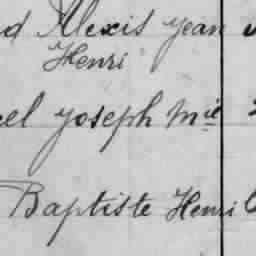 d Alexis Jean
Henri
el Joseph Mie
Baptiste Henri